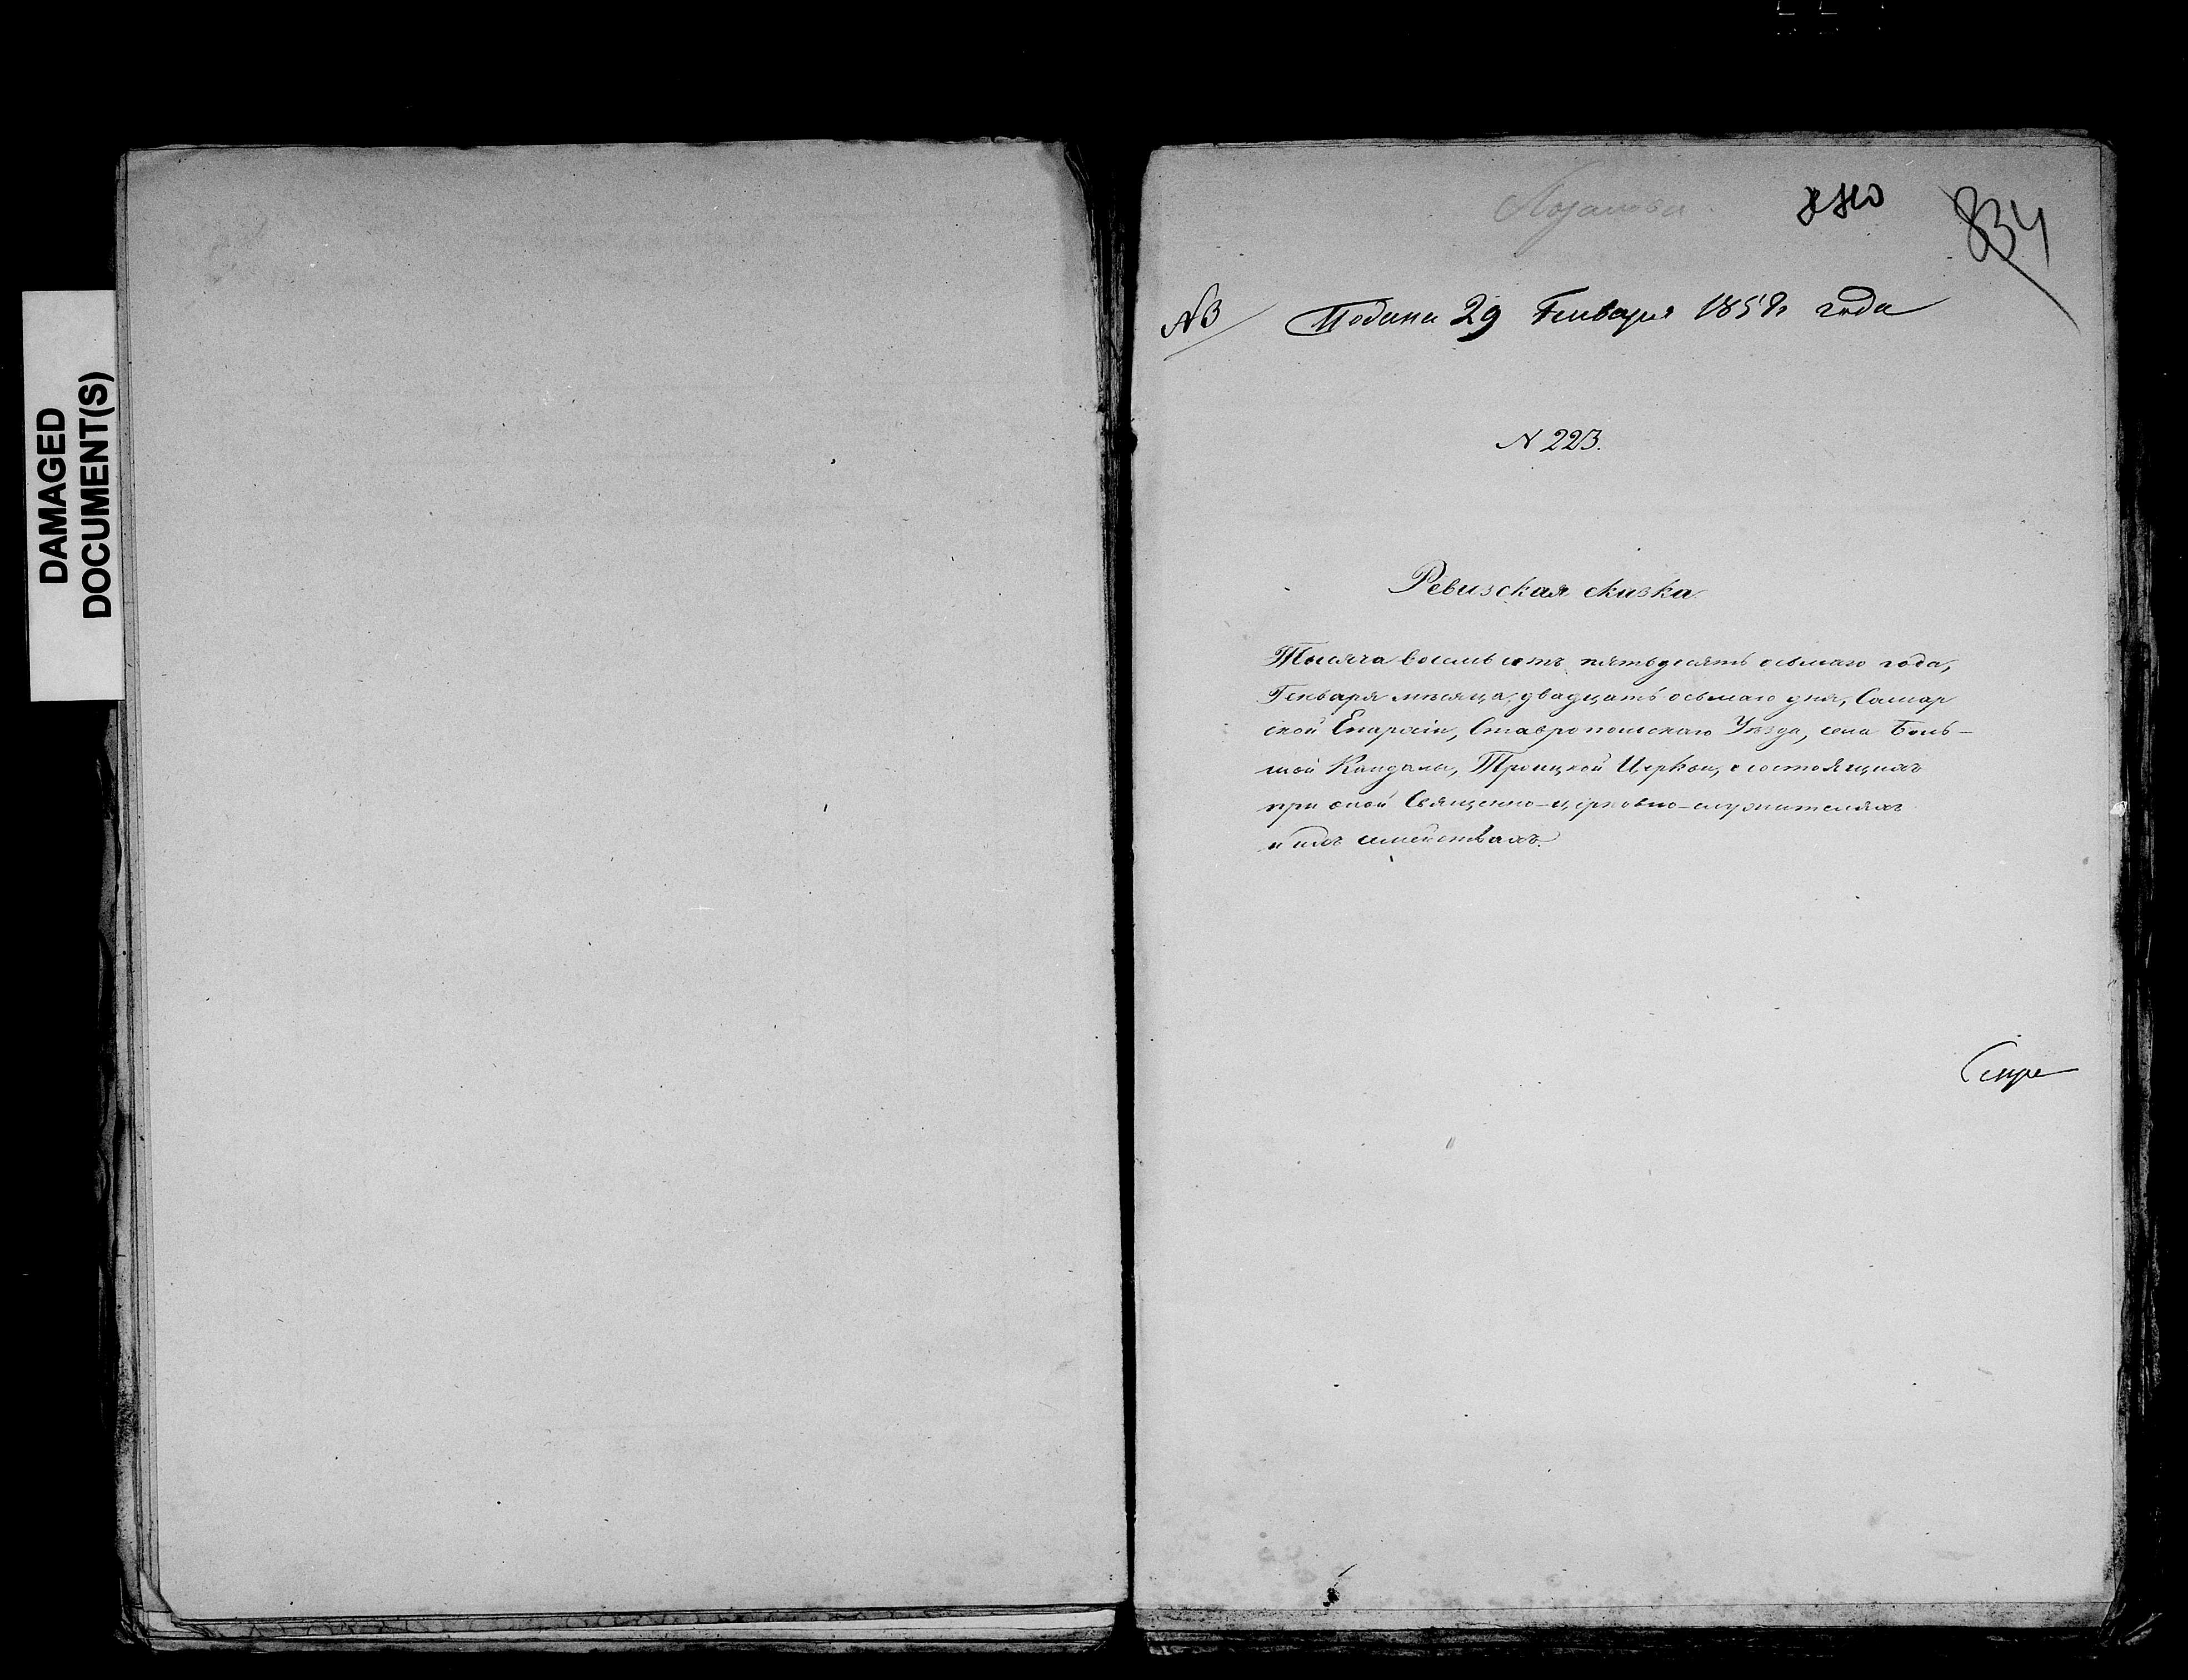 DAMAGED
DOCUMENT(S)
834
N3 Подана 29 Генваря 1858 года
N 223.
Ревизская сказка
Тысяча восемь сотъ пятьдесятъ осьмаго года,
Генваря мѣсяца, двадцать осьмаго дня, Самар
ской Епархіи, Ставропольскаго Уѣзда, села Боль-
шой Кандалы, Троицкой Церкви, о состоящихъ
при оной Священно-церковно-служителяхъ
и ихъ семействахъ.